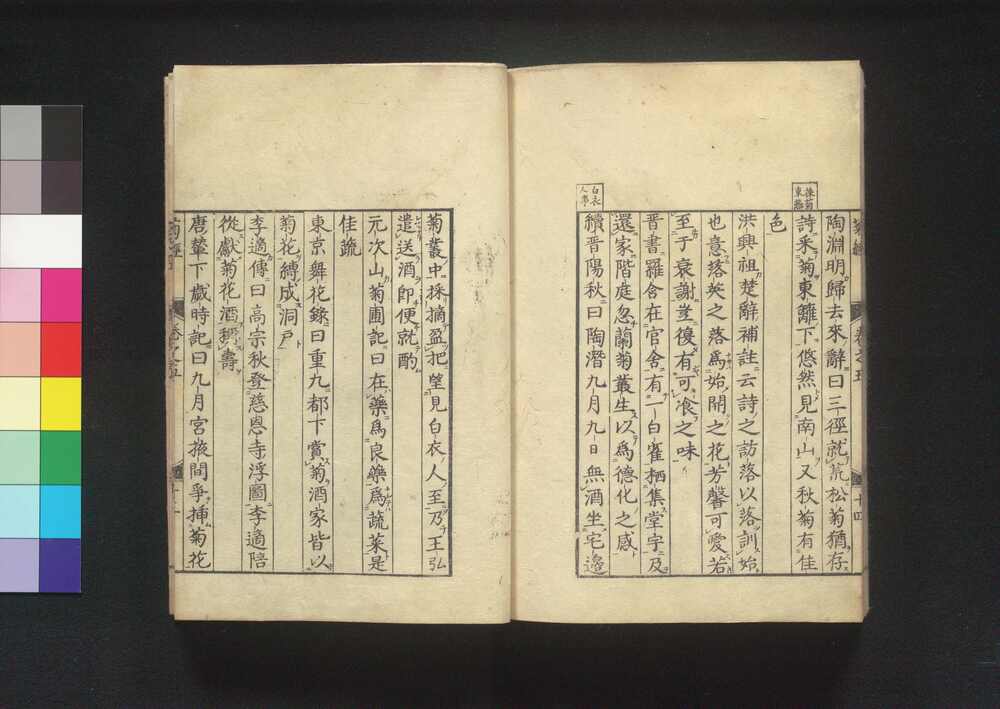 採菊
東籬
陶淵明歸去來辭曰三徑就荒松菊猶存
詩采菊東籬下悠然見南山又秋菊有佳
色
洪興祖楚辭補註云詩之訪落以落訓始
也意落英之落爲始開之花芳馨可愛若
至于衰謝豈復有可飡之味
晋書羅含在官舍有一白雀栖集堂宇及
還家階庭忽蘭菊叢生以爲德化之感
白衣
人事
續晋陽秋曰陶潛九月九日無酒坐宅邊
菊叢中採摘盈把望見白衣人至乃王弘
遣送酒即便就酌
元次山菊圃記曰在藥爲良藥爲蔬菜是
佳蔬
東京舞花錄曰重九都下賞菊酒家皆以
菊花縛成洞戸
李適傳曰高宗秋登慈恩寺浮圖李適陪
從獻菊花酒稱壽
唐輦下歲時記曰九月宮掖間爭挿菊花